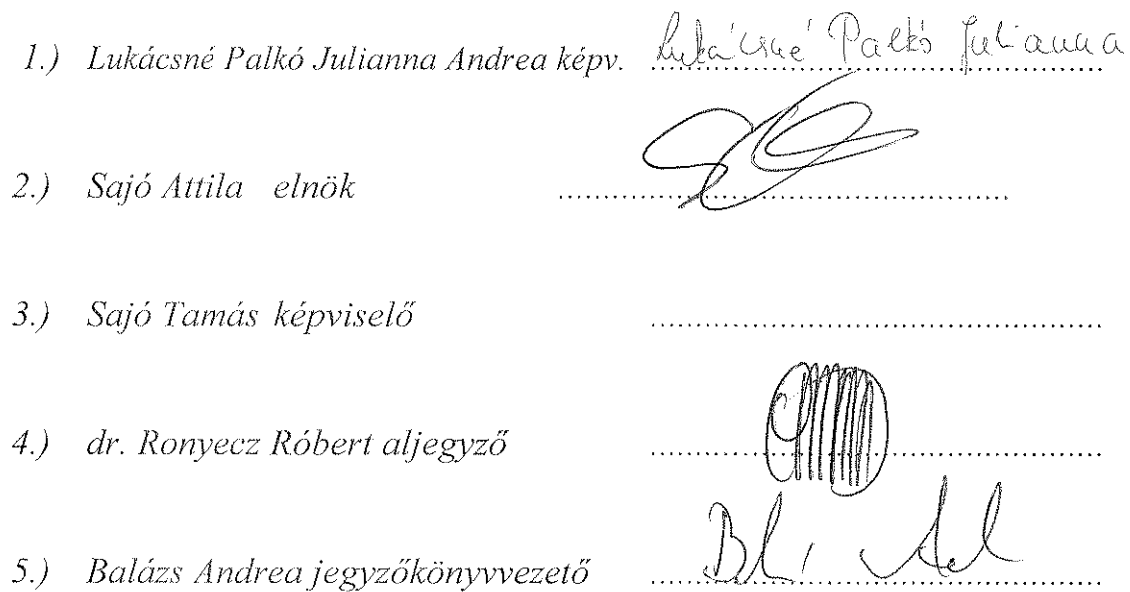 1.) Lukácsné Palkó Julianna Andrea képv. Lukácsné Palkó Julianna
2.) Sajó Attila elnök ..........
3.) Sajó Tamás képviselő ..........
4.) dr. Ronyecz Róbert aljegyző ..........
5.) Balázs Andrea jegyzőkönyvvezető ..........